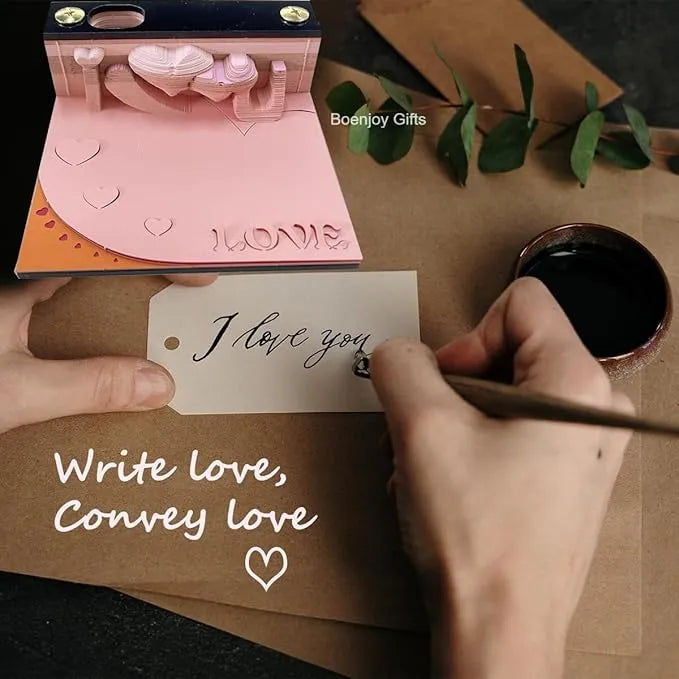 Boenjoy Gifts
I LOVE
I love you
Write love,
Convey love